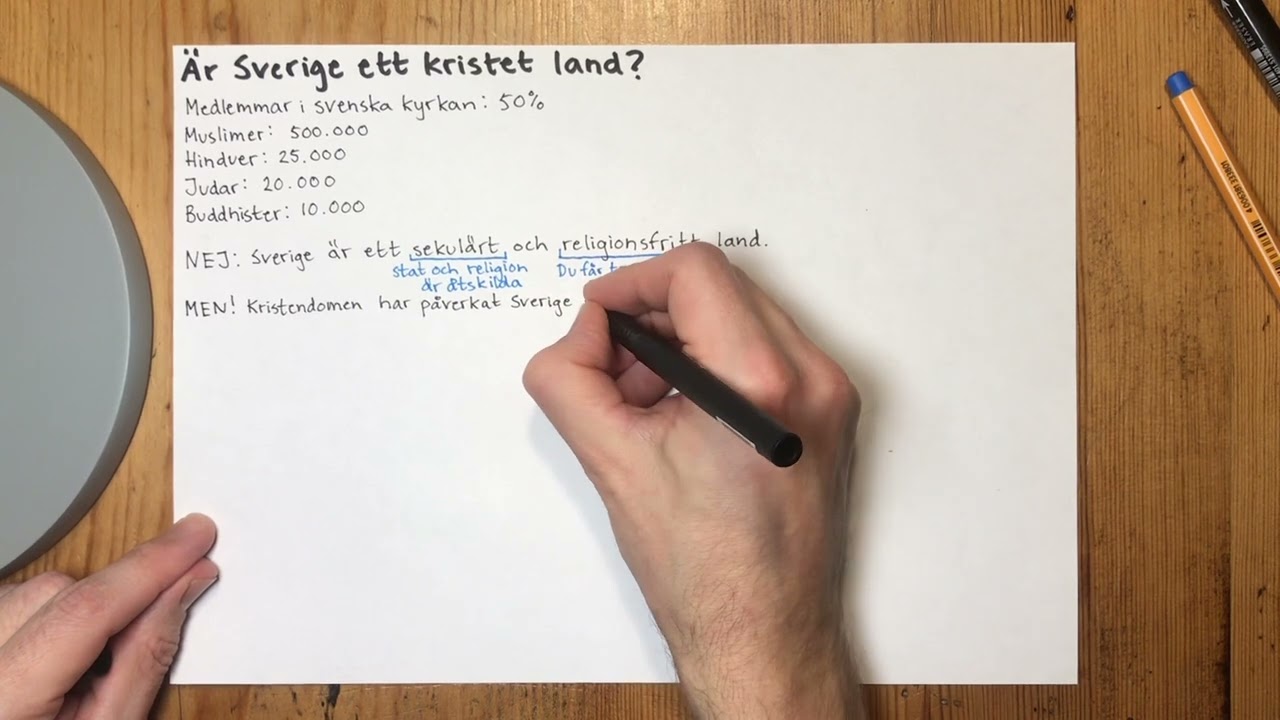 Är Sverige ett kristet land?
Medlemmar i svenska kyrkan: 50%
Muslimer: 500.000
Hinduer: 25.000
Judar: 20.000
Buddhister: 10.000
NEJ: Sverige är ett sekulärt och religionsfritt land.
stat och religion
är åtskilda
Du får
MEN! Kristendomen har påverkat Sverige